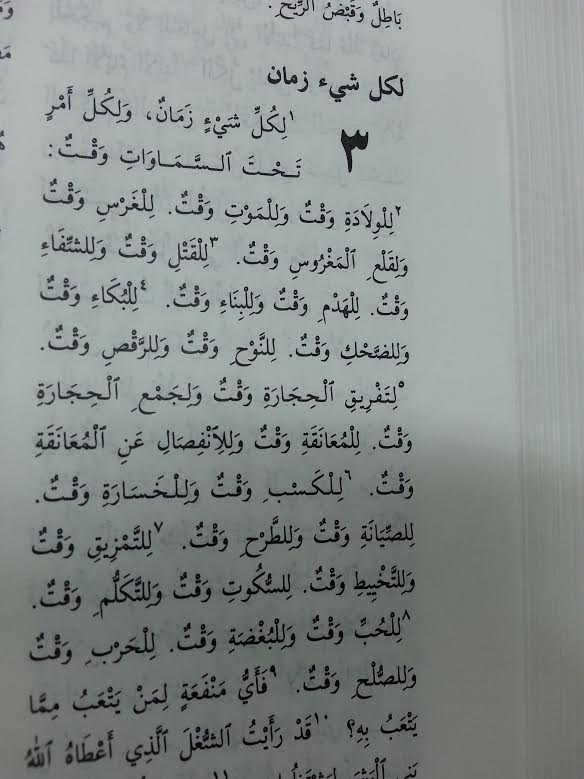 بَاطِلٌ وَقَبْضُ ٱلرِّيحِ.
لكل شيء زمان
٣ ١لِكُلِّ شَيْءٍ زَمَانٌ، وَلِكُلِّ أَمْرٍ
تَحْتَ ٱلسَّمَاوَاتِ وَقْتٌ:
٢لِلْوِلَادَةِ وَقْتٌ وَلِلْمَوْتِ وَقْتٌ. لِلْغَرْسِ وَقْتٌ
وَلِقَلْعِ ٱلْمَغْرُوسِ وَقْتٌ. ٣لِلْقَتْلِ وَقْتٌ وَلِلشِّفَاءِ
وَقْتٌ. لِلْهَدْمِ وَقْتٌ وَلِلْبِنَاءِ وَقْتٌ. ٤لِلْبُكَاءِ وَقْتٌ
وَلِلضَّحْكِ وَقْتٌ. لِلنَّوْحِ وَقْتٌ وَلِلرَّقْصِ وَقْتٌ.
٥لِتَفْرِيقِ ٱلْحِجَارَةِ وَقْتٌ وَلِجَمْعِ ٱلْحِجَارَةِ
وَقْتٌ. لِلْمُعَانَقَةِ وَقْتٌ وَلِلِٱنْفِصَالِ عَنِ ٱلْمُعَانَقَةِ
وَقْتٌ. ٦لِلْكَسْبِ وَقْتٌ وَلِلْخَسَارَةِ وَقْتٌ.
لِلصِّيَانَةِ وَقْتٌ وَلِلطَّرْحِ وَقْتٌ. ٧لِلتَّمْزِيقِ وَقْتٌ
وَلِلتَّخْيِيطِ وَقْتٌ. لِلسُّكُوتِ وَقْتٌ وَلِلتَّكَلُّمِ وَقْتٌ.
٨لِلْحُبِّ وَقْتٌ وَلِلْبُغْضَةِ وَقْتٌ. لِلْحَرْبِ وَقْتٌ
وَلِلصُّلْحِ وَقْتٌ. ٩فَأَيُّ مَنْفَعَةٍ لِمَنْ يَتْعَبُ مِمَّا
يَتْعَبُ بِهِ؟ ١٠قَدْ رَأَيْتُ ٱلشُّغْلَ ٱلَّذِي أَعْطَاهُ ٱللهُ